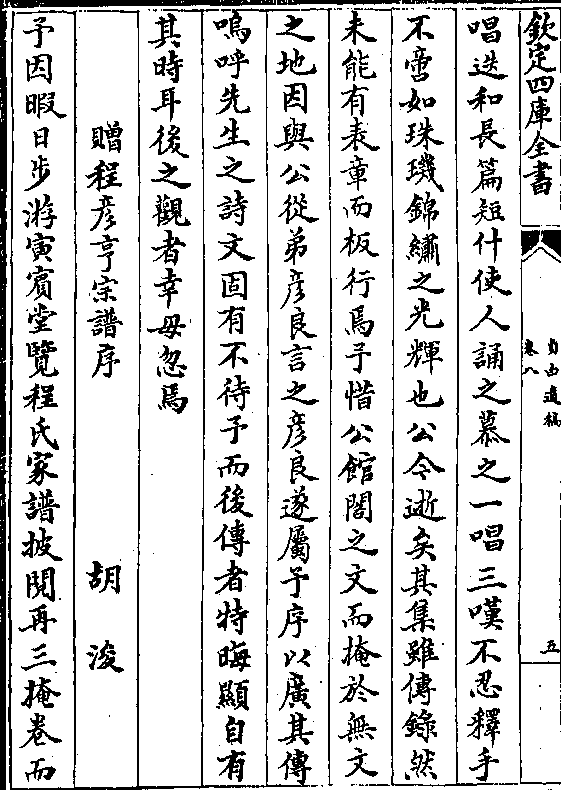 欽定四庫全書
貞白遺稿
卷八
五
唱迭和長篇短什使人誦之慕之一唱三嘆不忍釋手
不啻如珠璣錦繡之光輝也公今逝矣其集雖傳錄然
未能有表章而板行焉予惜公館閣之文而掩於無文
之地因與公從弟彥良言之彥良遂屬予序以廣其傳
嗚呼先生之詩文固有不待予而後傳者特晦顯自有
其時耳後之觀者幸毋忽焉
贈程彥亨宗譜序 胡浚
予因暇日步游寅賓堂覽程氏家譜披閱再三掩卷而